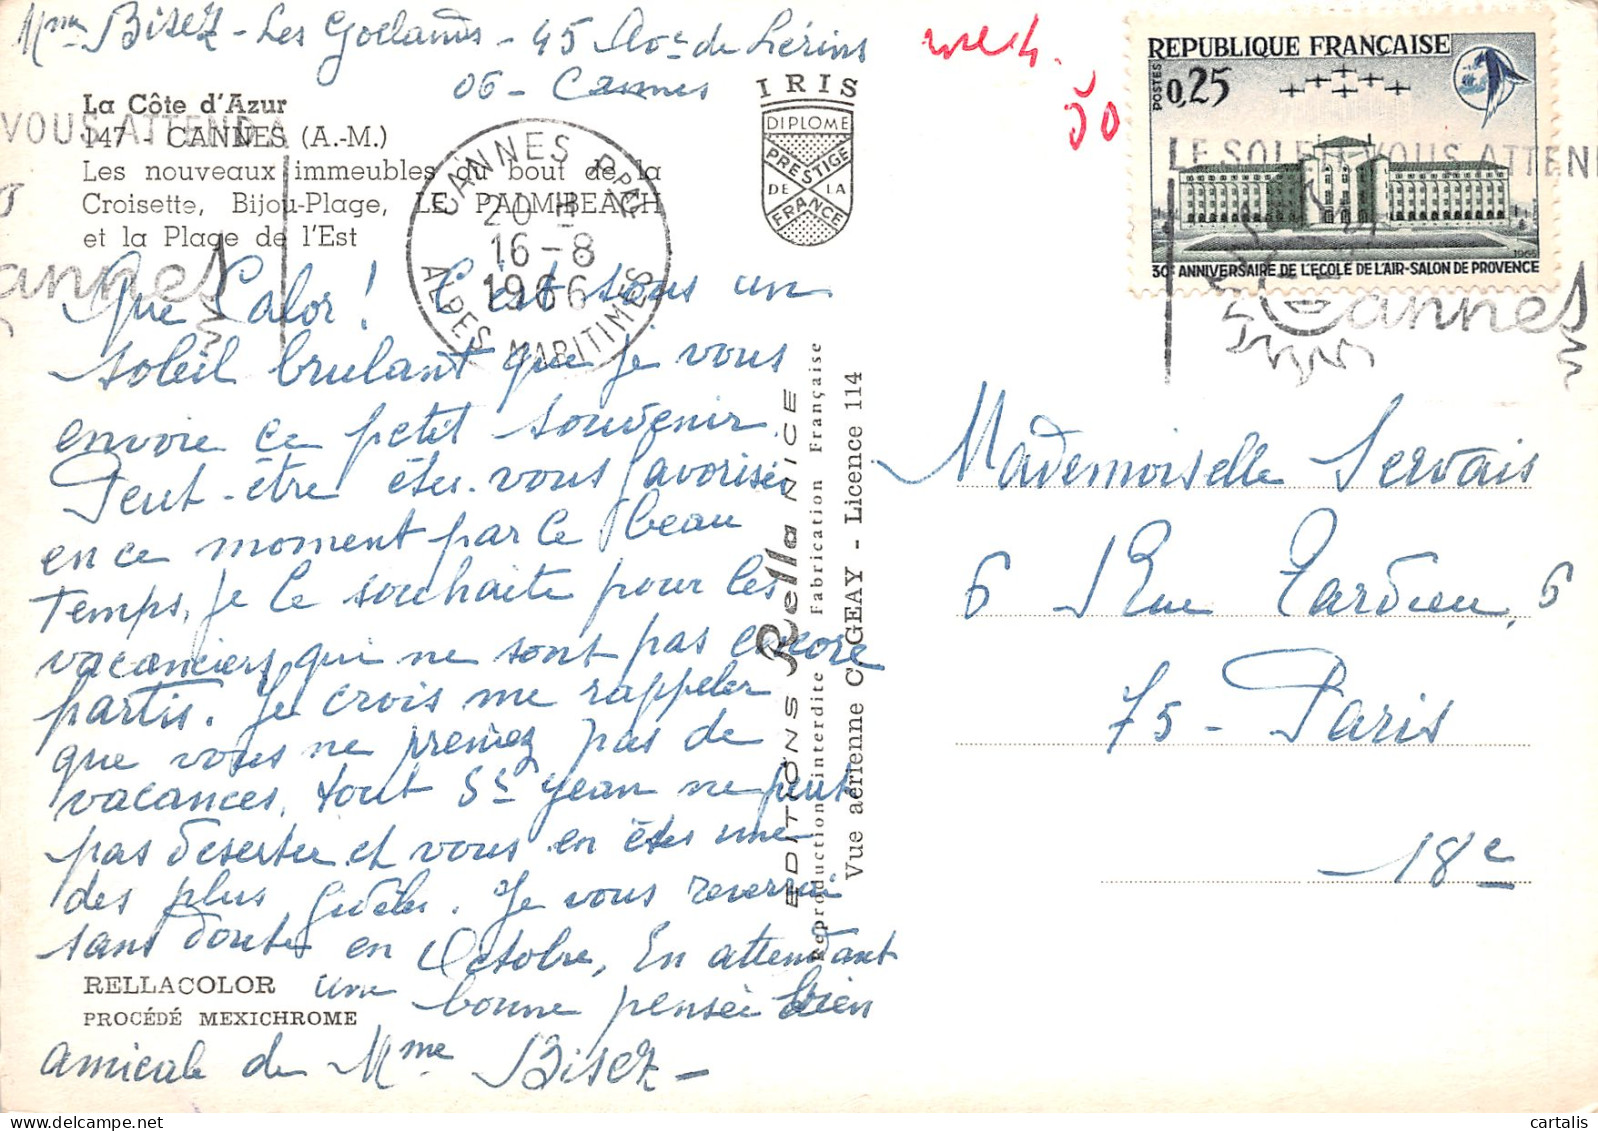 Mme Bisez - Les Goelands - 45 Ave de Lérins
06 - Cannes
La Côte d'Azur
147 - CANNES (A.-M.)
Les nouveaux immeubles du bout de la
Croisette, Bijou-Plage, LE PALM-BEACH
et la Plage de l'Est
IRIS
DIPLOME
PRESTIGE
DE LA
FRANCE
CANNES RPAL
20 H
16-8
1966
ALPES MARITIMES
VOUS ATTEND A
annes
Que Calor ! C'est sous un
soleil brulant que je vous
envoie ce petit souvenir.
Peut-être êtes-vous favorisés
en ce moment par le beau
Temps, je le souhaite pour les
vacanciers qui ne sont pas encore
partis. Je crois me rappeler
que vous ne preniez pas de
vacances, tout St Jean ne peut
pas deserter et vous en êtes une
des plus fidèles. Je vous reverrai
sans doute en Octobre, En attendant
une bonne pensée bien
amicale de Mme Bisez -
RELLACOLOR
PROCÉDÉ MEXICHROME
EDITIONS Rella NICE
Reproduction interdite Fabrication Française
Vue aérienne CIGEAY - Licence 114
50
REPUBLIQUE FRANÇAISE
POSTES
0,25
1965
30E ANNIVERSAIRE DE L'ECOLE DE L'AIR-SALON DE PROVENCE
LE SOLEIL VOUS ATTEND
Cannes
Mademoiselle Servais
6 Rue Tardieu, 6
75 - Paris
- 18e
cartalis